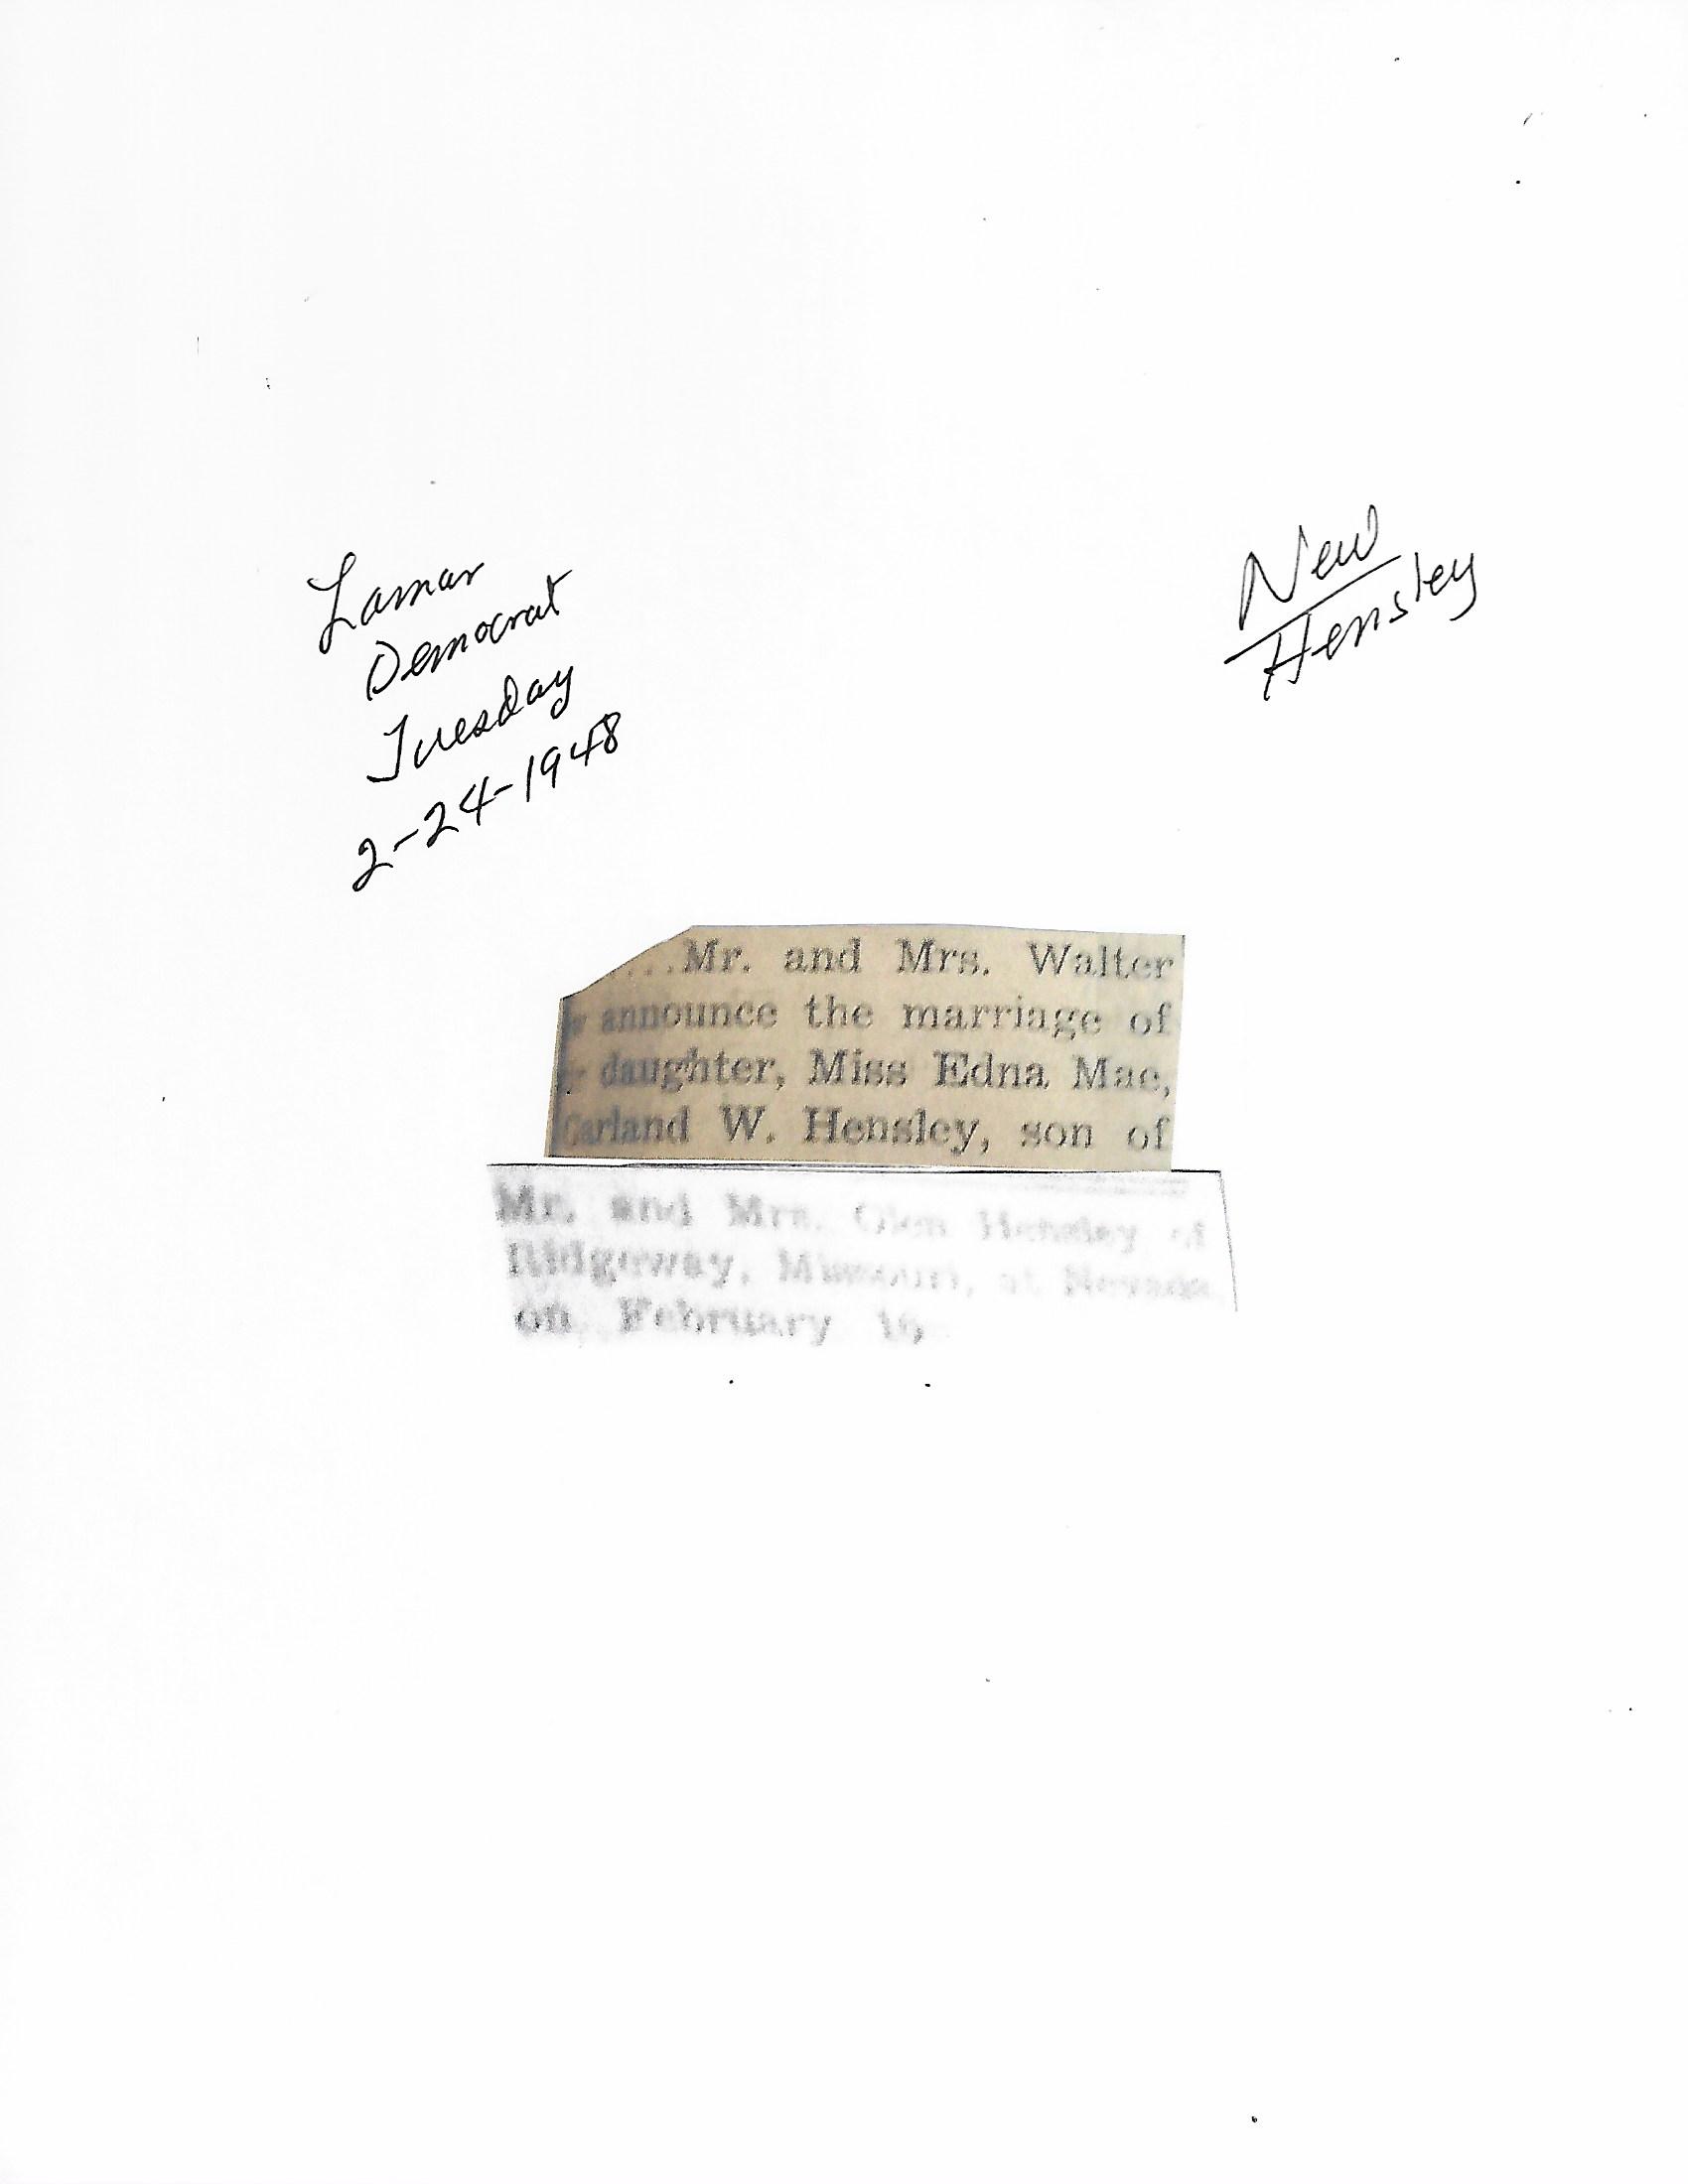 Lamar
Democrat
Tuesday
2-24-1948
New
Hensley
...Mr. and Mrs. Walter
announce the marriage of
daughter, Miss Edna Mae,
Garland W. Hensley, son of
Mr. and Mrs. Glen Hensley of
Ridgeway, Missouri, at Nevada
on February